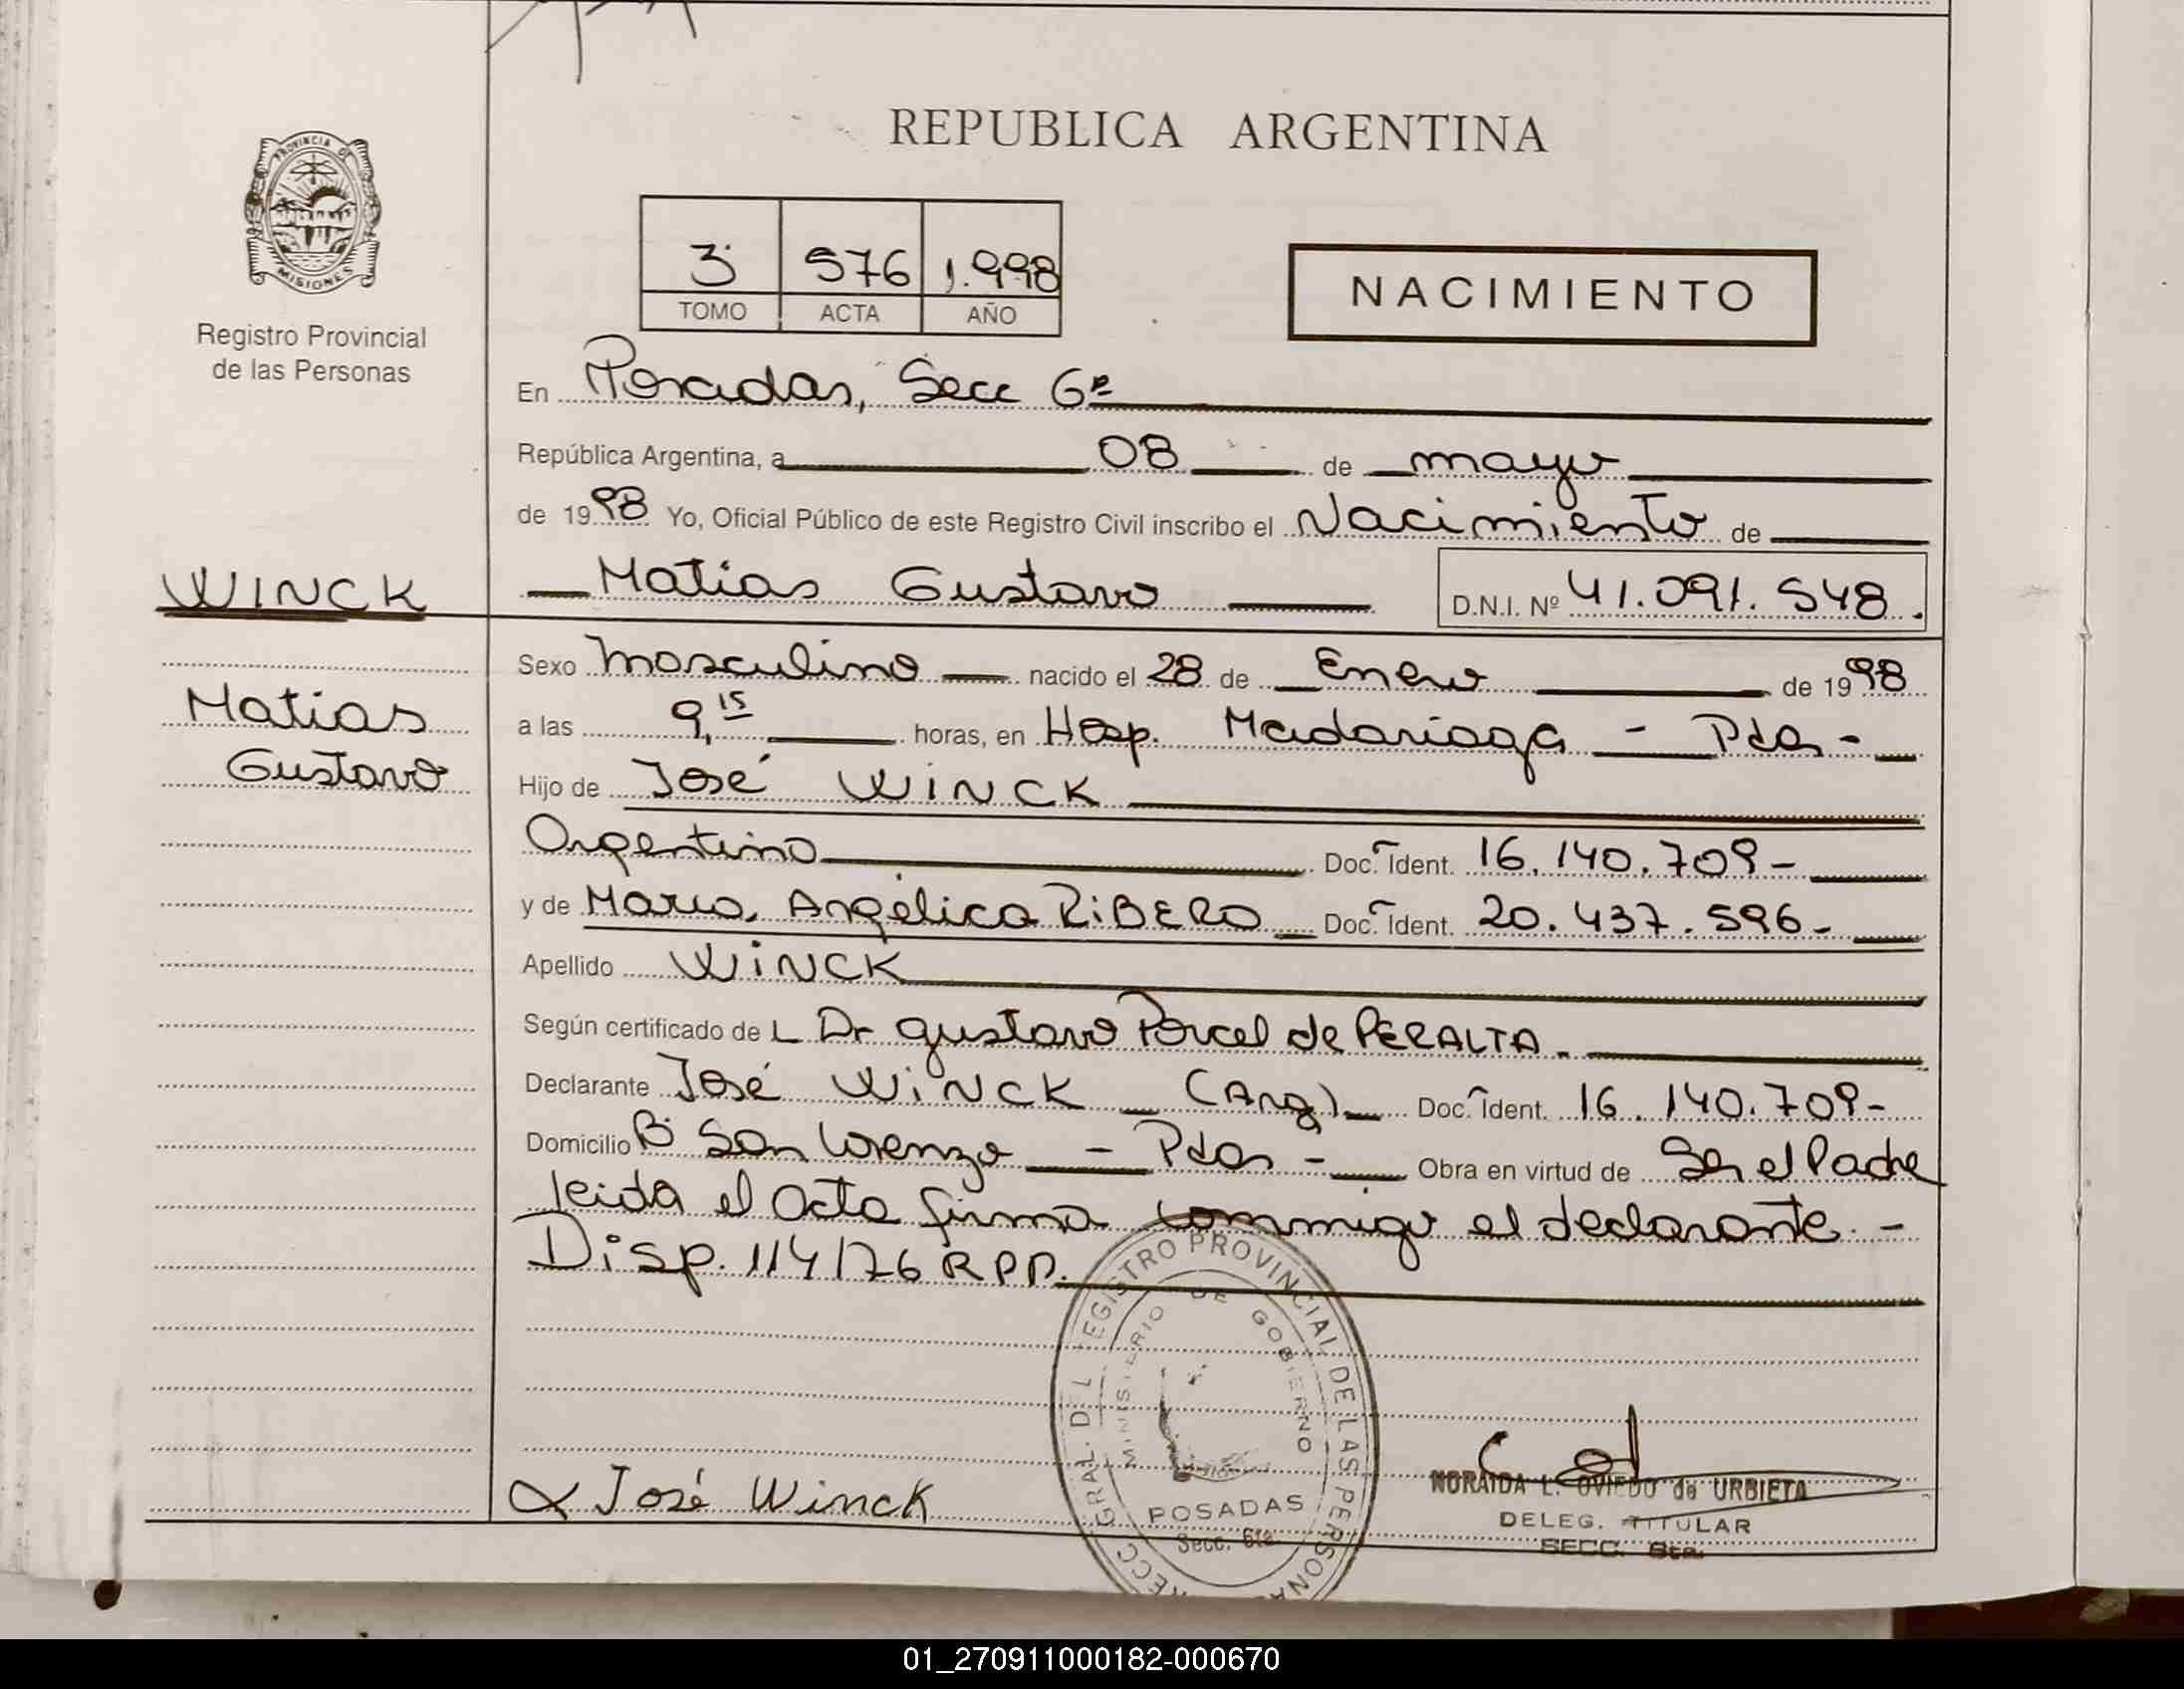 REPUBLICA ARGENTINA
PROVINCIA DE
MISIONES
Registro Provincial
de las Personas
3 576 1.998
TOMO ACTA AÑO
NACIMIENTO
En Posadas, Secc 6ª
República Argentina, a 08 de mayo
de 1998 Yo, Oficial Público de este Registro Civil inscribo el Nacimiento de
WINCK
Matias Gustavo D.N.I. Nº 41.091.548.
Sexo Masculino nacido el 28 de Enero de 1998
Matias
Gustavo
a las 9,15 horas, en Hosp. Madariaga - Pdas -
Hijo de José WINCK
Argentino Doc. Ident. 16.140.709-
y de Maria Angélica RIBERO Doc. Ident. 20.437.596-
Apellido WINCK
Según certificado de L Dr Gustavo Porcel de PERALTA.
Declarante José WINCK (Arg) Doc. Ident. 16.140.709-
Domicilio Bº San Lorenzo - Pdas - Obra en virtud de Ser el Padre
leida el Acta firma conmigo el declarante. -
Disp. 114/76 R.P.P.
DIRECC GRAL. DEL REGISTRO PROVINCIAL DE LAS PERSONAS
MINISTERIO DE GOBIERNO
POSADAS
Secc. 6ta
José Winck
NORAIDA L. OVIEDO de URBIETA
DELEG. TITULAR
SECC. 6ta.
01_270911000182-000670